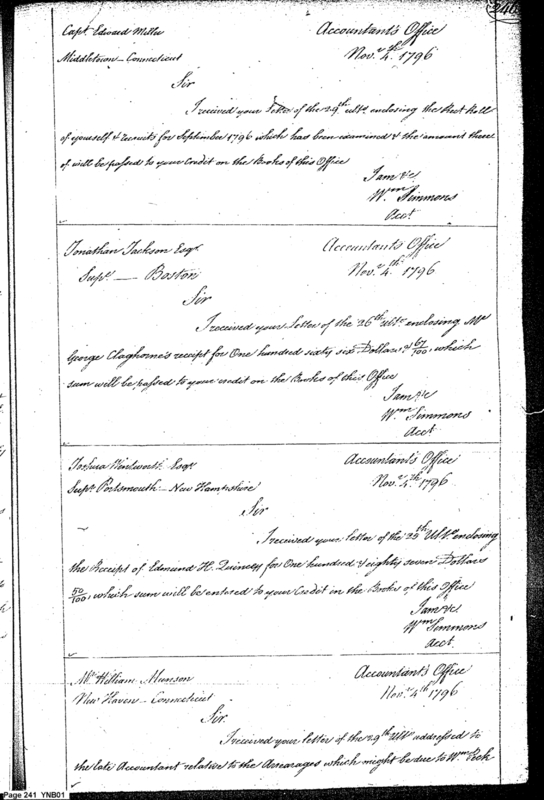 246
Capt Edward Miller
Accountant's Office
Middletown - Connecticut
Novr. 4th. 1796
Sir
I received your letter of the 29th ulto. enclosing the Rect Roll
of yourself & recruits for September 1796 which has been examined & the amount there
of will be passed to your Credit on the Books of this Office
I am &c
Wm Simmons
Acct
Jonathan Jackson Esqr.
Accountant's Office
Supr. — Boston
Novr. 4th. 1796
Sir
I received your Letter of the 26th ulto. enclosing Mr
George Claghorne's receipt for One hundred sixty six Dollars & 67/100, which
sum will be passed to your credit on the Books of this Office
I am &c
Wm Simmons
Acct
Joshua Wentworth Esqr
Accountant's Office
Supr. Portsmouth - New Hampshire
Novr. 4th. 1796
Sir
I received your letter of the 25th Ulto. enclosing
the Receipt of Edmund H. Quincy for One hundred & eighty seven Dollars
50/100, which sum will be entered to your Credit in the Books of this Office
I am &c
Wm Simmons
Acct.
Mr. William Munson
Accountant's Office
New Haven - Connecticut
Novr. 4th 1796
Sir
I received your letter of the 29th Ulto addressed to
the late Accountant relative to the Arrearages which might be due to Wm Peck
Page 241 YNB01